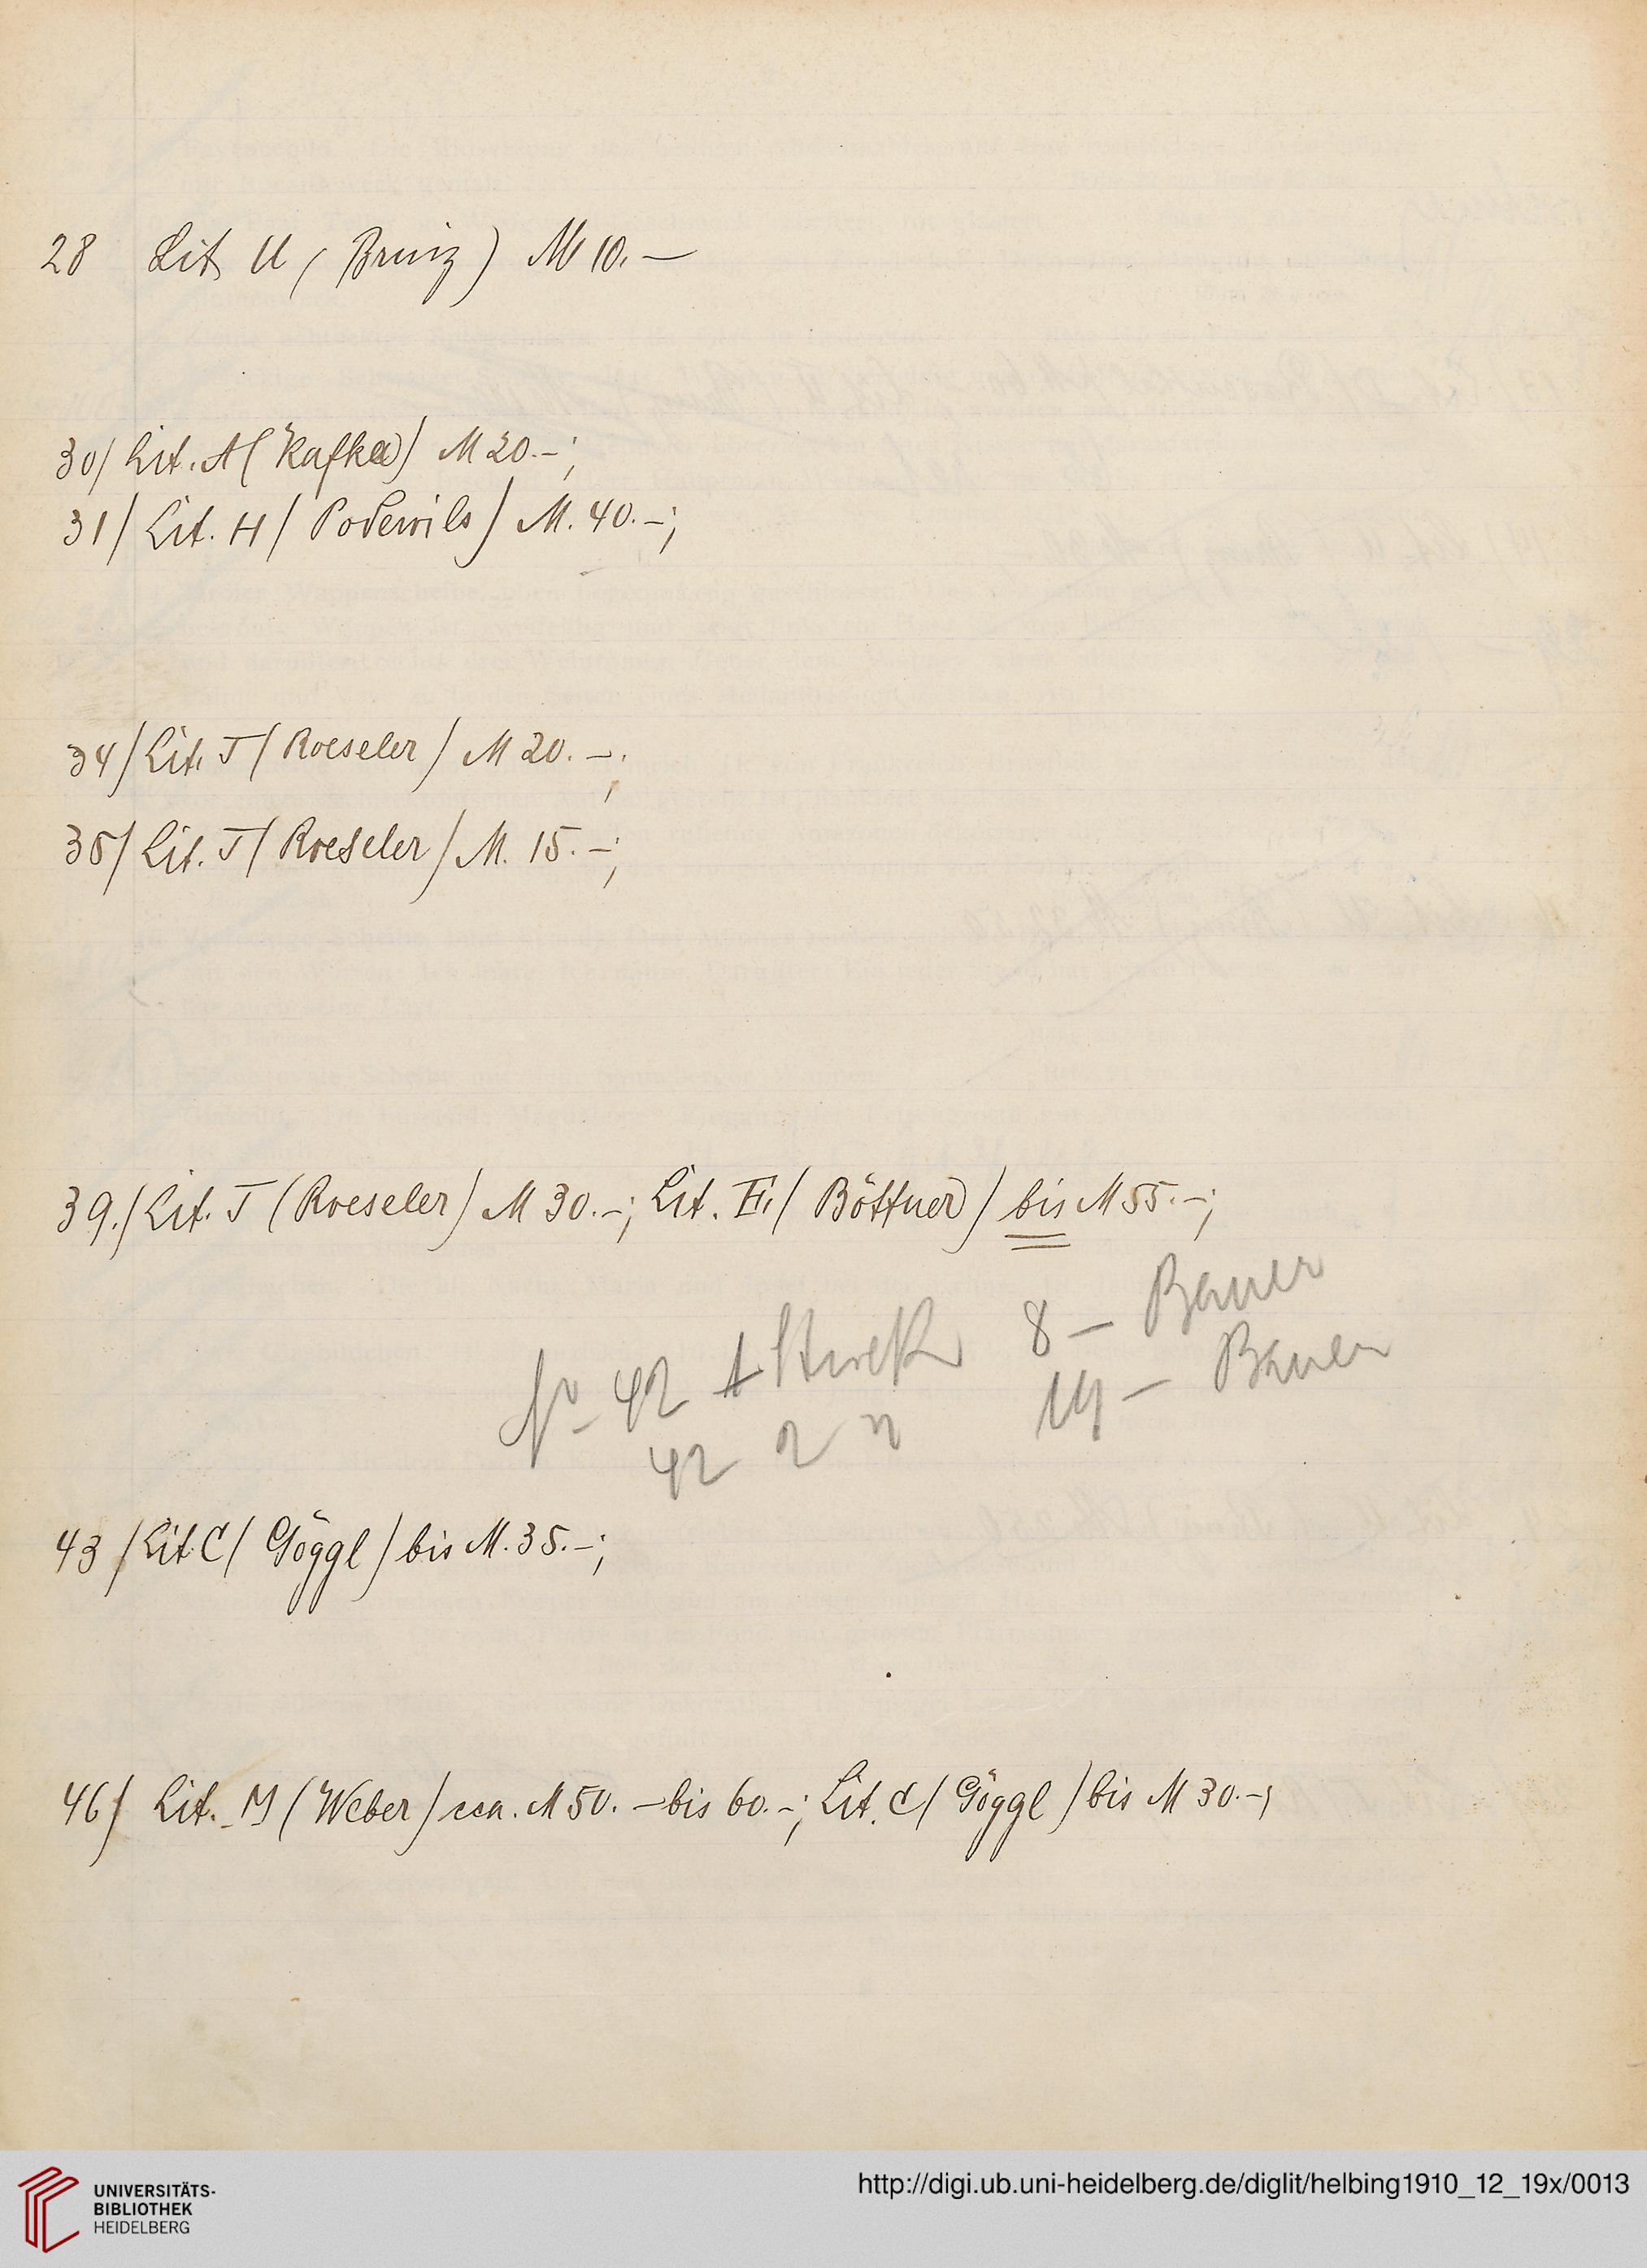 28 Lit U (Prinz) M 10.—
30/ Lit. A (Kafka) M 20.-;
31/ Lit. H / Podewils / M. 40.-;
34/ Lit. J / Roeseler / M 20.-;
35/ Lit. J / Roeseler / M. 15.-;
39./ Lit. J (Roeseler) M 30.-; Lit. E. / Böttner / bis M 55.-;
No 42 1 Stück 8 — Bauer
42 2 " 14 — Bauer
43 / Lit C / Göggl / bis M. 35.-;
46/ Lit. M (Weber) cca. M 50. - bis 60.-; Lit. C / Göggl / bis M 30.-;
UNIVERSITÄTS-
BIBLIOTHEK
HEIDELBERG
http://digi.ub.uni-heidelberg.de/diglit/helbing1910_12_19x/0013